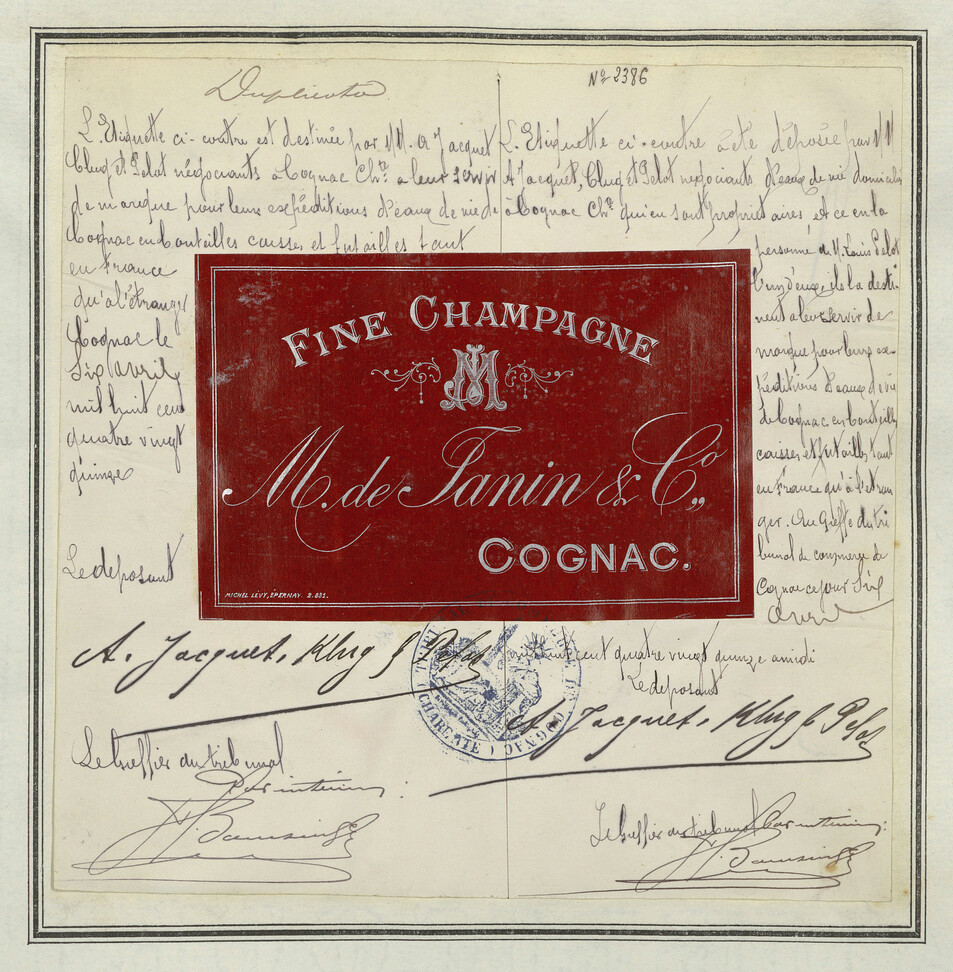 Duplicata
L'Etiquette ci-contre est destinée par MM. A Jacquet
Klug et Pelot négociants à Cognac Chte à leur servir
de marque pour leurs expéditions d'eaux de vie de
Cognac en bouteilles caisses et futailles tant
en France
qu'à l'étranger
Cognac le
Six avril
mil huit cent
quatre vingt
quinze
Le déposant
A. Jacquet, Klug & Pelot
Le Greffier du tribunal
Par intérim
No 2386
L'Etiquette ci-contre a été déposée par MM
A Jacquet, Klug et Pelot négociants d'eaux de vie domiciliés
à Cognac Chte qui en sont propriétaires et ce en la
personne de M. Louis Pelot
l'un d'eux ils la desti-
nent à leur servir de
marque pour leurs ex-
péditions d'eaux de vie
de Cognac en bouteilles
caisses et futailles tant
en France qu'à l'étran
ger. Au Greffe du tri
bunal de commerce de
Cognac ce jour Six
avril
mil huit cent quatre vingt quinze à midi
Le déposant
A. Jacquet, Klug & Pelot
Le Greffier du tribunal Par intérim
FINE CHAMPAGNE
M. de Janin & Co
COGNAC.
MICHEL LÉVY, ÉPERNAY. 2.831.
CHARENTE
COGNAC